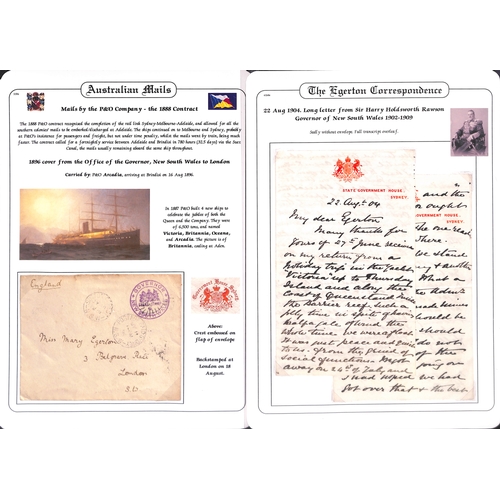 Australian Mails
Mails by the P&O Company - the 1888 Contract
The 1888 P&O contract recognised the completion of the rail link Sydney-Melbourne-Adelaide, and allowed for all the
southern colonies' mails to be embarked/discharged at Adelaide. The ships continued on to Melbourne and Sydney, probably
at P&O's insistence for passengers and freight, but not under time penalty, whilst the mails went by train, being much
faster. The contract called for a fortnightly service between Adelaide and Brindisi in 780 hours (32.5 days) via the Suez
Canal, the mails usually remaining aboard the same ship throughout.
1896 cover from the Office of the Governor, New South Wales to London
Carried by P&O Arcadia, arriving at Brindisi on 16 Aug 1896.
In 1887 P&O built 4 new ships to
celebrate the Jubilee of both the
Queen and the Company. They were
of 6,500 tons, and named
Victoria, Britannia, Oceana,
and Arcadia. The picture is of
Britannia, coaling at Aden.
England
Miss Mary Egerton
London
Above:
Crest embossed on
flap of envelope
Backstamped at
London on 18
August.
The Egerton Correspondence
22 Aug 1904. Long letter from Sir Harry Holdsworth Rawson
Governor of New South Wales 1902-1909
Sadly without envelope. Full transcript overleaf.
STATE GOVERNMENT HOUSE,
SYDNEY.
22 Augt 04
My dear Egerton
Many thanks for
yours of 27th June received
on my return from a
holiday trip in the Yacht
"Victoria" up to Thursday
Island and along the
Coast of Queensland inside
the Barrier reef. Such a
jolly time in spite of having
half a gale of wind the
whole time we were afloat.
It was just peace and quiet
to us from the grind of
social functions. Left
away on 24th of July and
I had hoped we had
got over that & the best
and the
ought
There.
we stand
another
should
do not
of this
going on